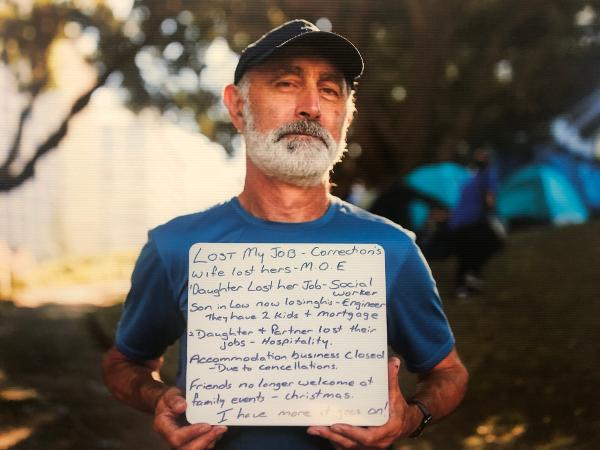 LOST MY JOB - Correction's
wife lost hers - M.O.E
'Daughter Lost her Job - Social
worker
Son in Law now losing his - Engineer
They have 2 kids + mortgage
2 Daughter + Partner lost their
jobs - Hospitality.
Accommodation business closed
- Due to cancellations.
Friends no longer welcome at
family events - christmas.
I have more it goes on!